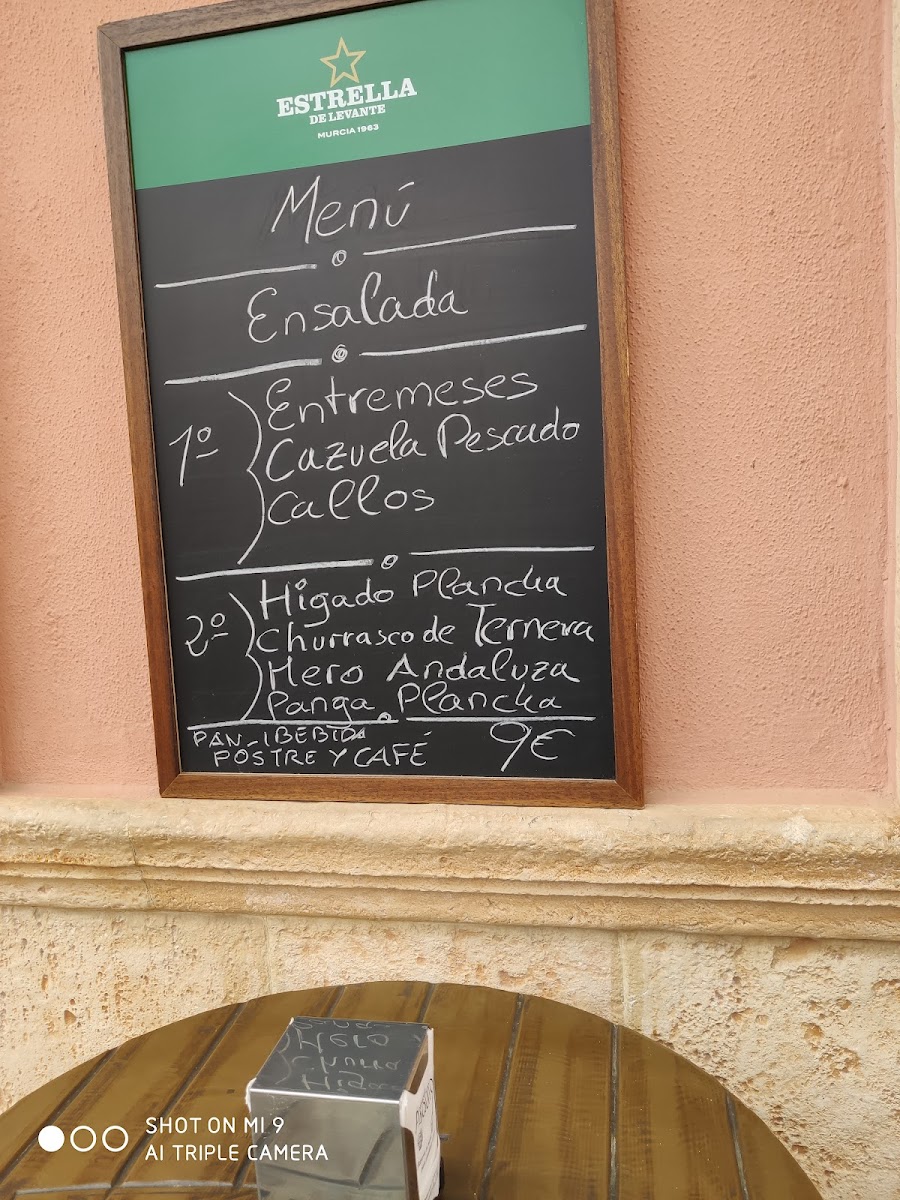 ESTRELLA
DE LEVANTE
MURCIA 1963
Menú
Ensalada
1º
Entremeses
Cazuela Pescado
Callos
2º
Higado Plancha
Churrasco de Ternera
Mero Andaluza
Panga Plancha
PAN-1BEBIDA
POSTRE Y CAFÉ
9€
SHOT ON MI 9
AI TRIPLE CAMERA